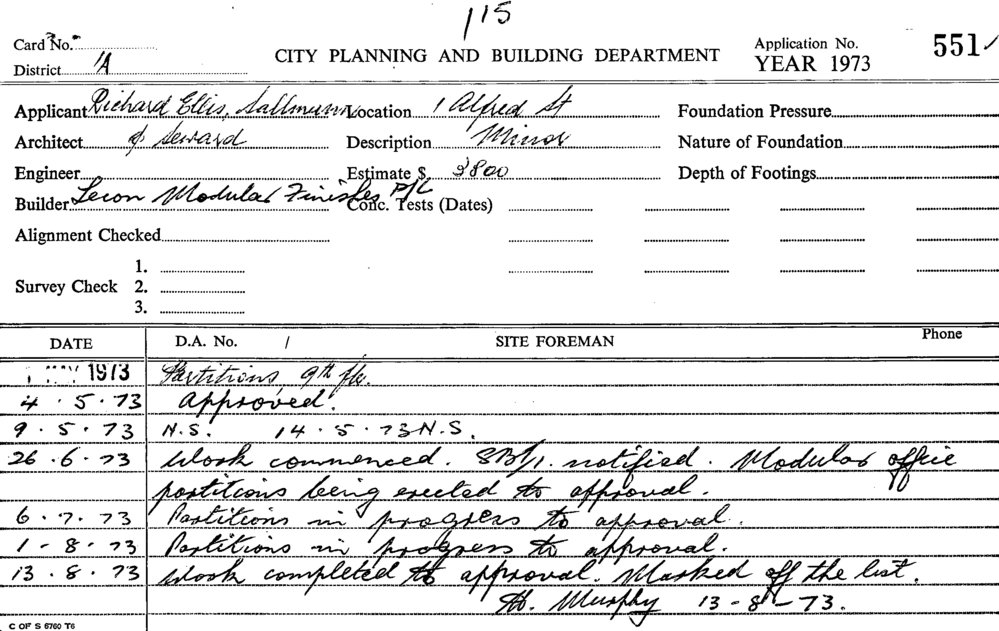 115
Card No.
CITY PLANNING AND BUILDING DEPARTMENT
Application No. 551
District 1A
YEAR 1973
Applicant Richard Ellis, Sallmann Location 1 Alfred St Foundation Pressure
Architect & Seward Description Minor Nature of Foundation
Engineer Estimate $ 3800 Depth of Footings
Builder Lecon Modular Finishes P/L Conc. Tests (Dates)
Alignment Checked
1.
Survey Check 2.
3.
DATE D.A. No. / SITE FOREMAN Phone
MAY 1973 Partitions, 9th flr.
4.5.73 Approved.
9.5.73 N.S. 14.5.73 N.S.
26.6.73 Work commenced. SB/1. notified. Modular office
partitions being erected to approval.
6.7.73 Partitions in progress to approval.
1-8.73 Partitions in progress to approval.
13.8.73 Work completed to approval. Marked off the list.
Murphy 13-8-73.
C OF S 6760 T6